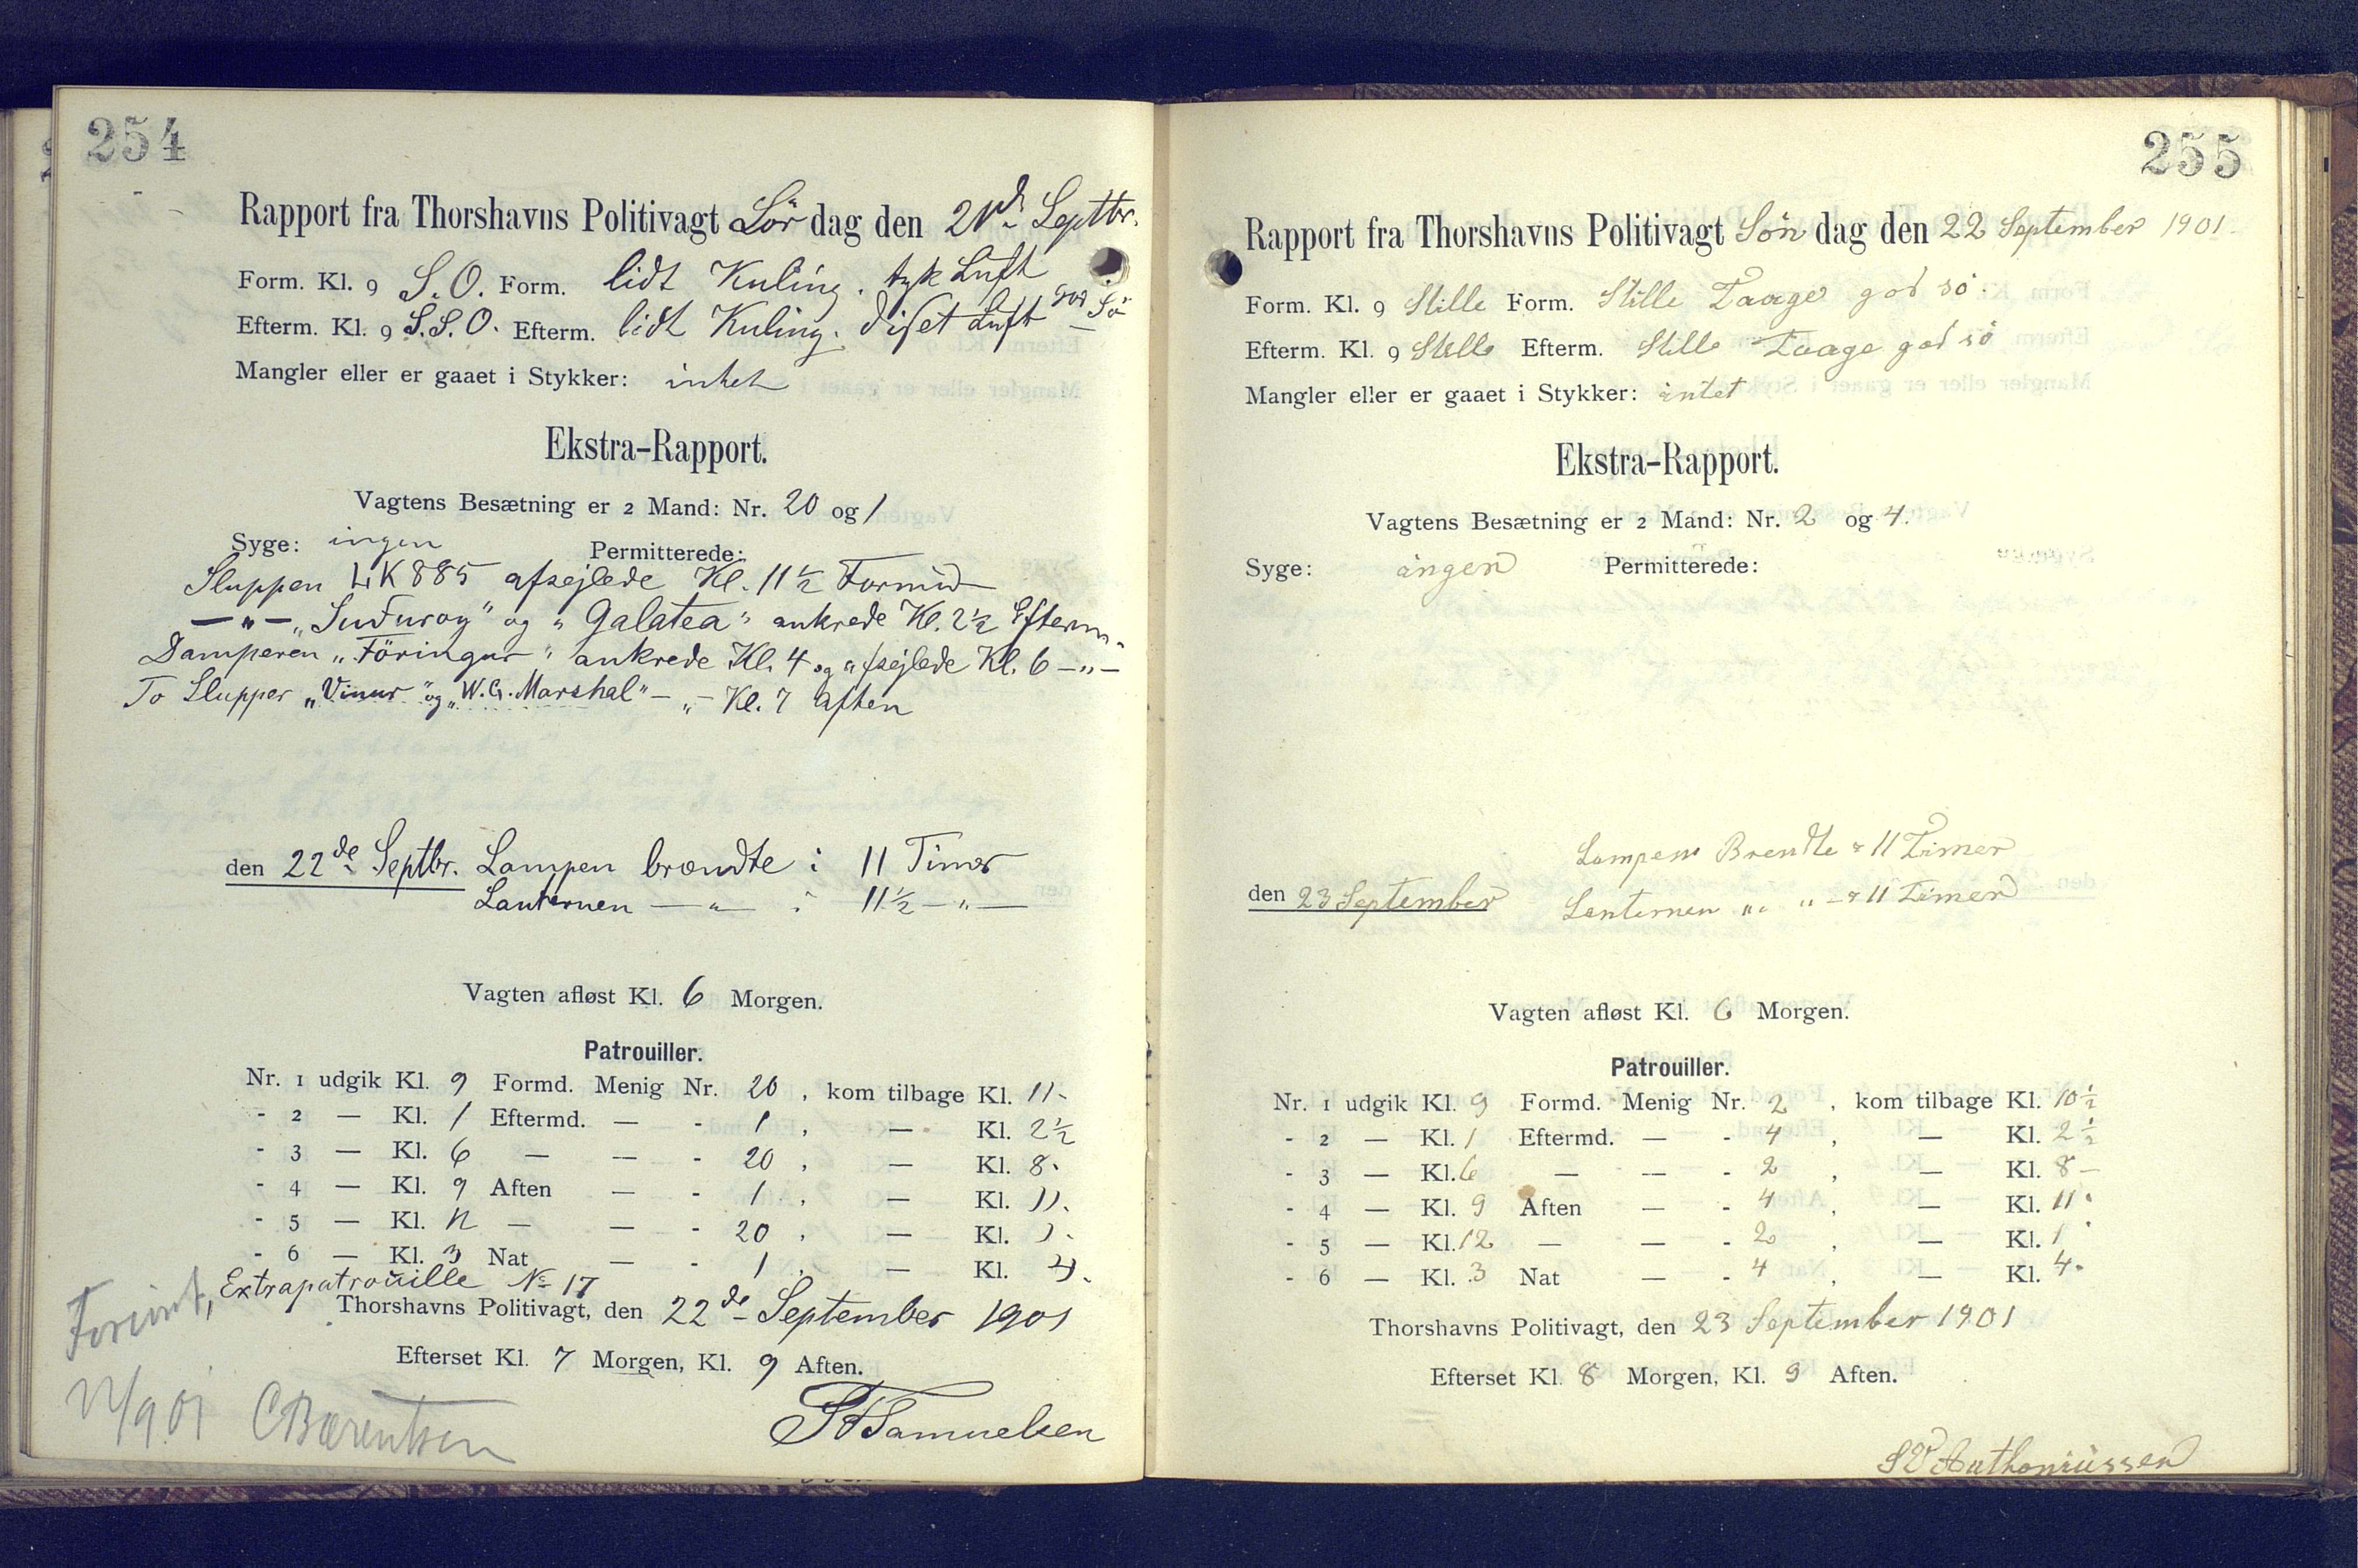 254
Rapport fra Thorshavns Politivagt Lör dag den 21de Septbr.
Form. Kl. 9 S.O. Form. lidt Kuling. tyk Luft
Efterm. Kl. 9 S.S.O. Efterm. lidt Kuling. diset Luft god Sö
Mangler eller er gaaet i Stykker: intet
Ekstra-Rapport.
Vagtens Besætning er 2 Mand: Nr. 20 og 1
Syge: ingen Permitterede:
Sluppen LK 885 afsejlede Kl. 11½ Formid
—"— „Suduroy" og „Galatea" ankrede Kl. 2½ Efterm.
Damperen „Föringur" ankrede Kl. 4 og afsejlede Kl. 6 —"—
To Slupper „Vinur" og „W.G. Marshal" —"— Kl. 7 Aften
den 22de Septbr. Lampen brændte i 11 Timer
Lanternen —"— i 11½ —"—
Vagten afløst Kl. 6 Morgen.
Patrouiller.
Nr. 1 udgik Kl. 9 Formd. Menig Nr. 20, kom tilbage Kl. 11.
- 2 — Kl. 1 Eftermd. — - 1, — Kl. 2½
- 3 — Kl. 6 — — - 20, — Kl. 8.
- 4 — Kl. 9 Aften — - 1, — Kl. 11.
- 5 — Kl. 12 — — - 20, — Kl. 1.
- 6 — Kl. 3 Nat — - 1, — Kl. 4.
Extrapatrouille No 17
Thorshavns Politivagt, den 22de September 1901
Efterset Kl. 7 Morgen, Kl. 9 Aften.
CBærentsen
Samuelsen
255
Rapport fra Thorshavns Politivagt Sön dag den 22 September 1901.
Form. Kl. 9 Stille Form. Stille Taage god sö
Efterm. Kl. 9 Stille Efterm. Stille Taage god sö
Mangler eller er gaaet i Stykker: intet
Ekstra-Rapport.
Vagtens Besætning er 2 Mand: Nr. 2 og 4.
Syge: ingen Permitterede:
Lampen Brendte i 11 Timer
den 23 September Lanternen " " i 11 Timer
Vagten afløst Kl. 6 Morgen.
Patrouiller.
Nr. 1 udgik Kl. 9 Formd. Menig Nr. 2, kom tilbage Kl. 10½
- 2 — Kl. 1 Eftermd. — - 4, — Kl. 2½
- 3 — Kl. 6 — — - 2, — Kl. 8 —
- 4 — Kl. 9 Aften — - 4, — Kl. 11.
- 5 — Kl. 12 — — - 2, — Kl. 1.
- 6 — Kl. 3 Nat — - 4, — Kl. 4.
Thorshavns Politivagt, den 23 September 1901
Efterset Kl. 8 Morgen, Kl. 9 Aften.
Anthoniussen